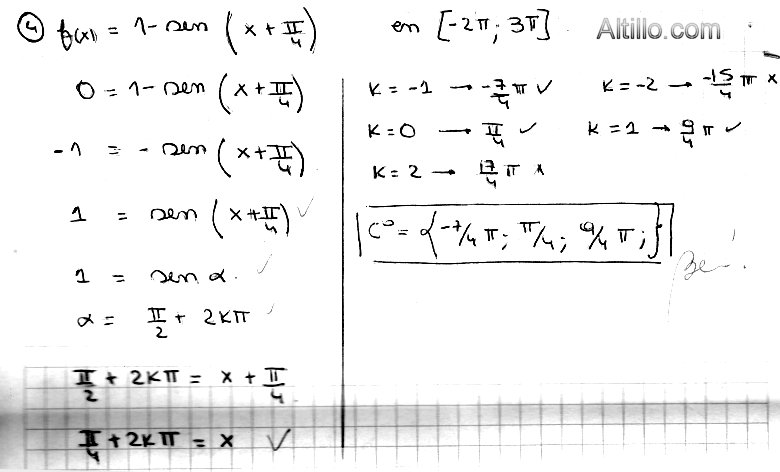 4 f(x) = 1 - sen (x + π/4) en [-2π; 3π]
Altillo.com
0 = 1 - sen (x + π/4)
-1 = - sen (x + π/4)
1 = sen (x + π/4) ✓
1 = sen α. ✓
α = π/2 + 2kπ ✓
π/2 + 2kπ = x + π/4
π/4 + 2kπ = x ✓
K = -1 → -7/4 π ✓ K = -2 → -15/4 π x
K = 0 → π/4 ✓ K = 1 → 9/4 π ✓
K = 2 → 17/4 π x
C⁰ = { -7/4 π; π/4; 9/4 π; }